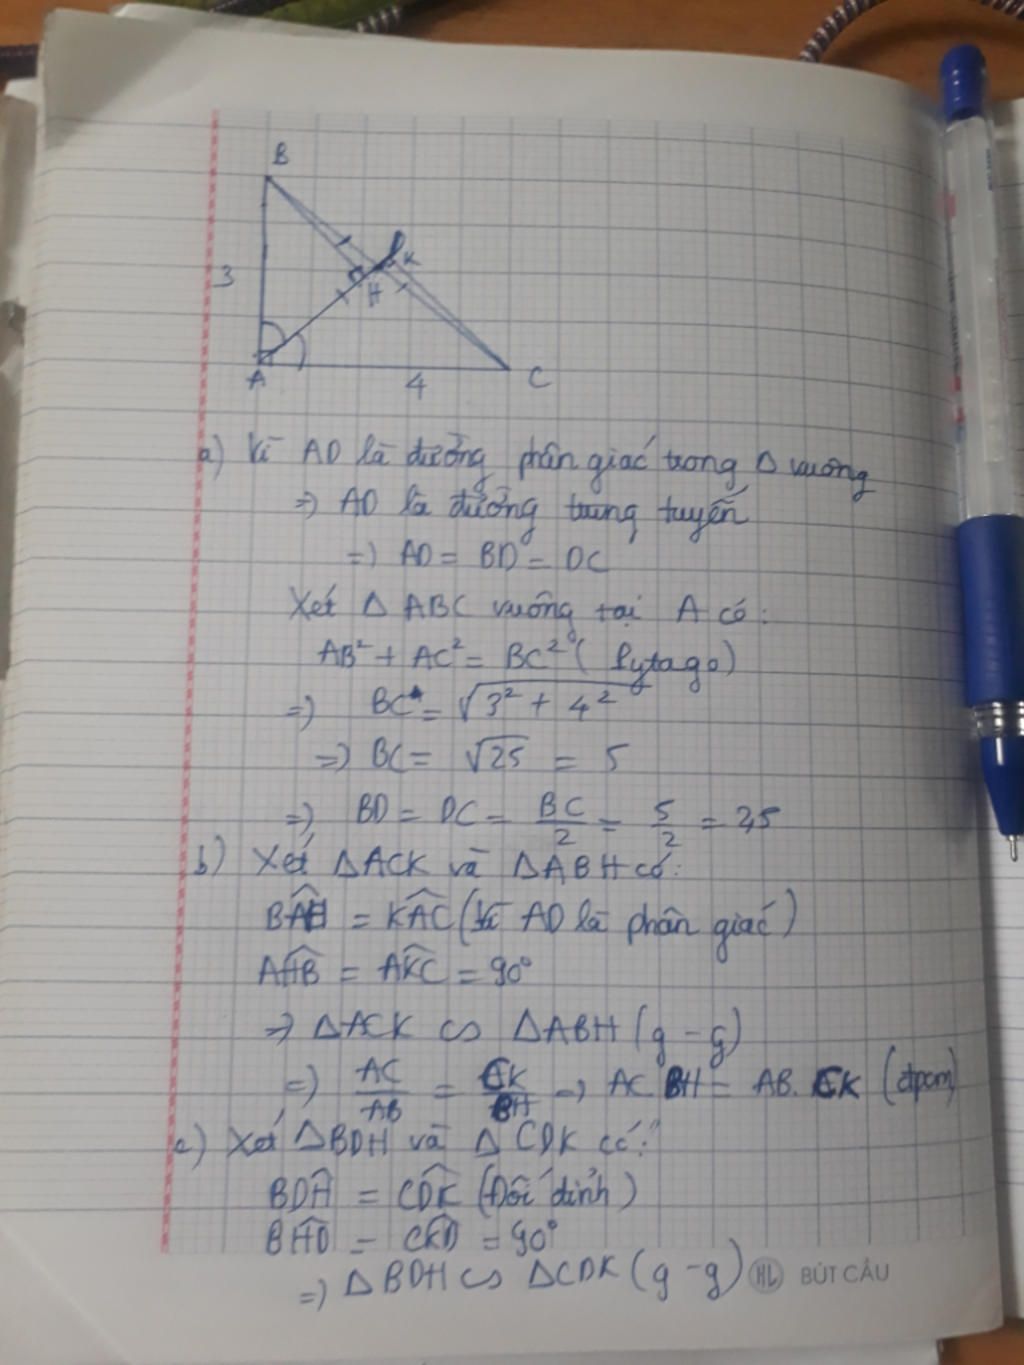 B
3
K
H
A
4
C
a) Vì AD là đường phân giác trong Δ vuông
=> AD là đường trung tuyến
=> AD = BD = DC
Xét Δ ABC vuông tại A có:
AB² + AC² = BC² (Pytago)
=> BC = √3² + 4²
=> BC = √25 = 5
=> BD = DC = BC/2 = 5/2 = 2,5
b) Xét ΔACK và ΔABH có:
BAH = KAC (Vì AD là phân giác)
AHB = AKC = 90°
=> ΔACK ∽ ΔABH (g-g)
=> AC/AB = CK/BH => AC BH = AB. CK (đpcm)
c) Xét ΔBDH và Δ CDK có:
BDH = CDK (Đối đỉnh)
BHD = CKD = 90°
=> ΔBDH ∽ ΔCDK (g-g)
HL BÚT CÂU